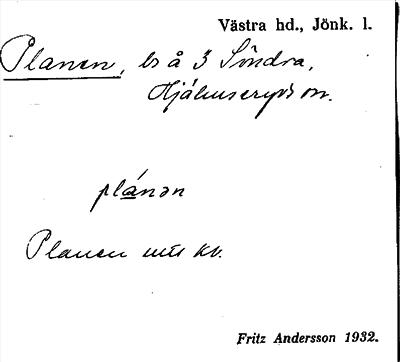 Västra hd., Jönk. l.
Planen, ls å 3 Söndra,
Hjälmseryds sn.
plánən
Planen
Fritz Andersson 1932.